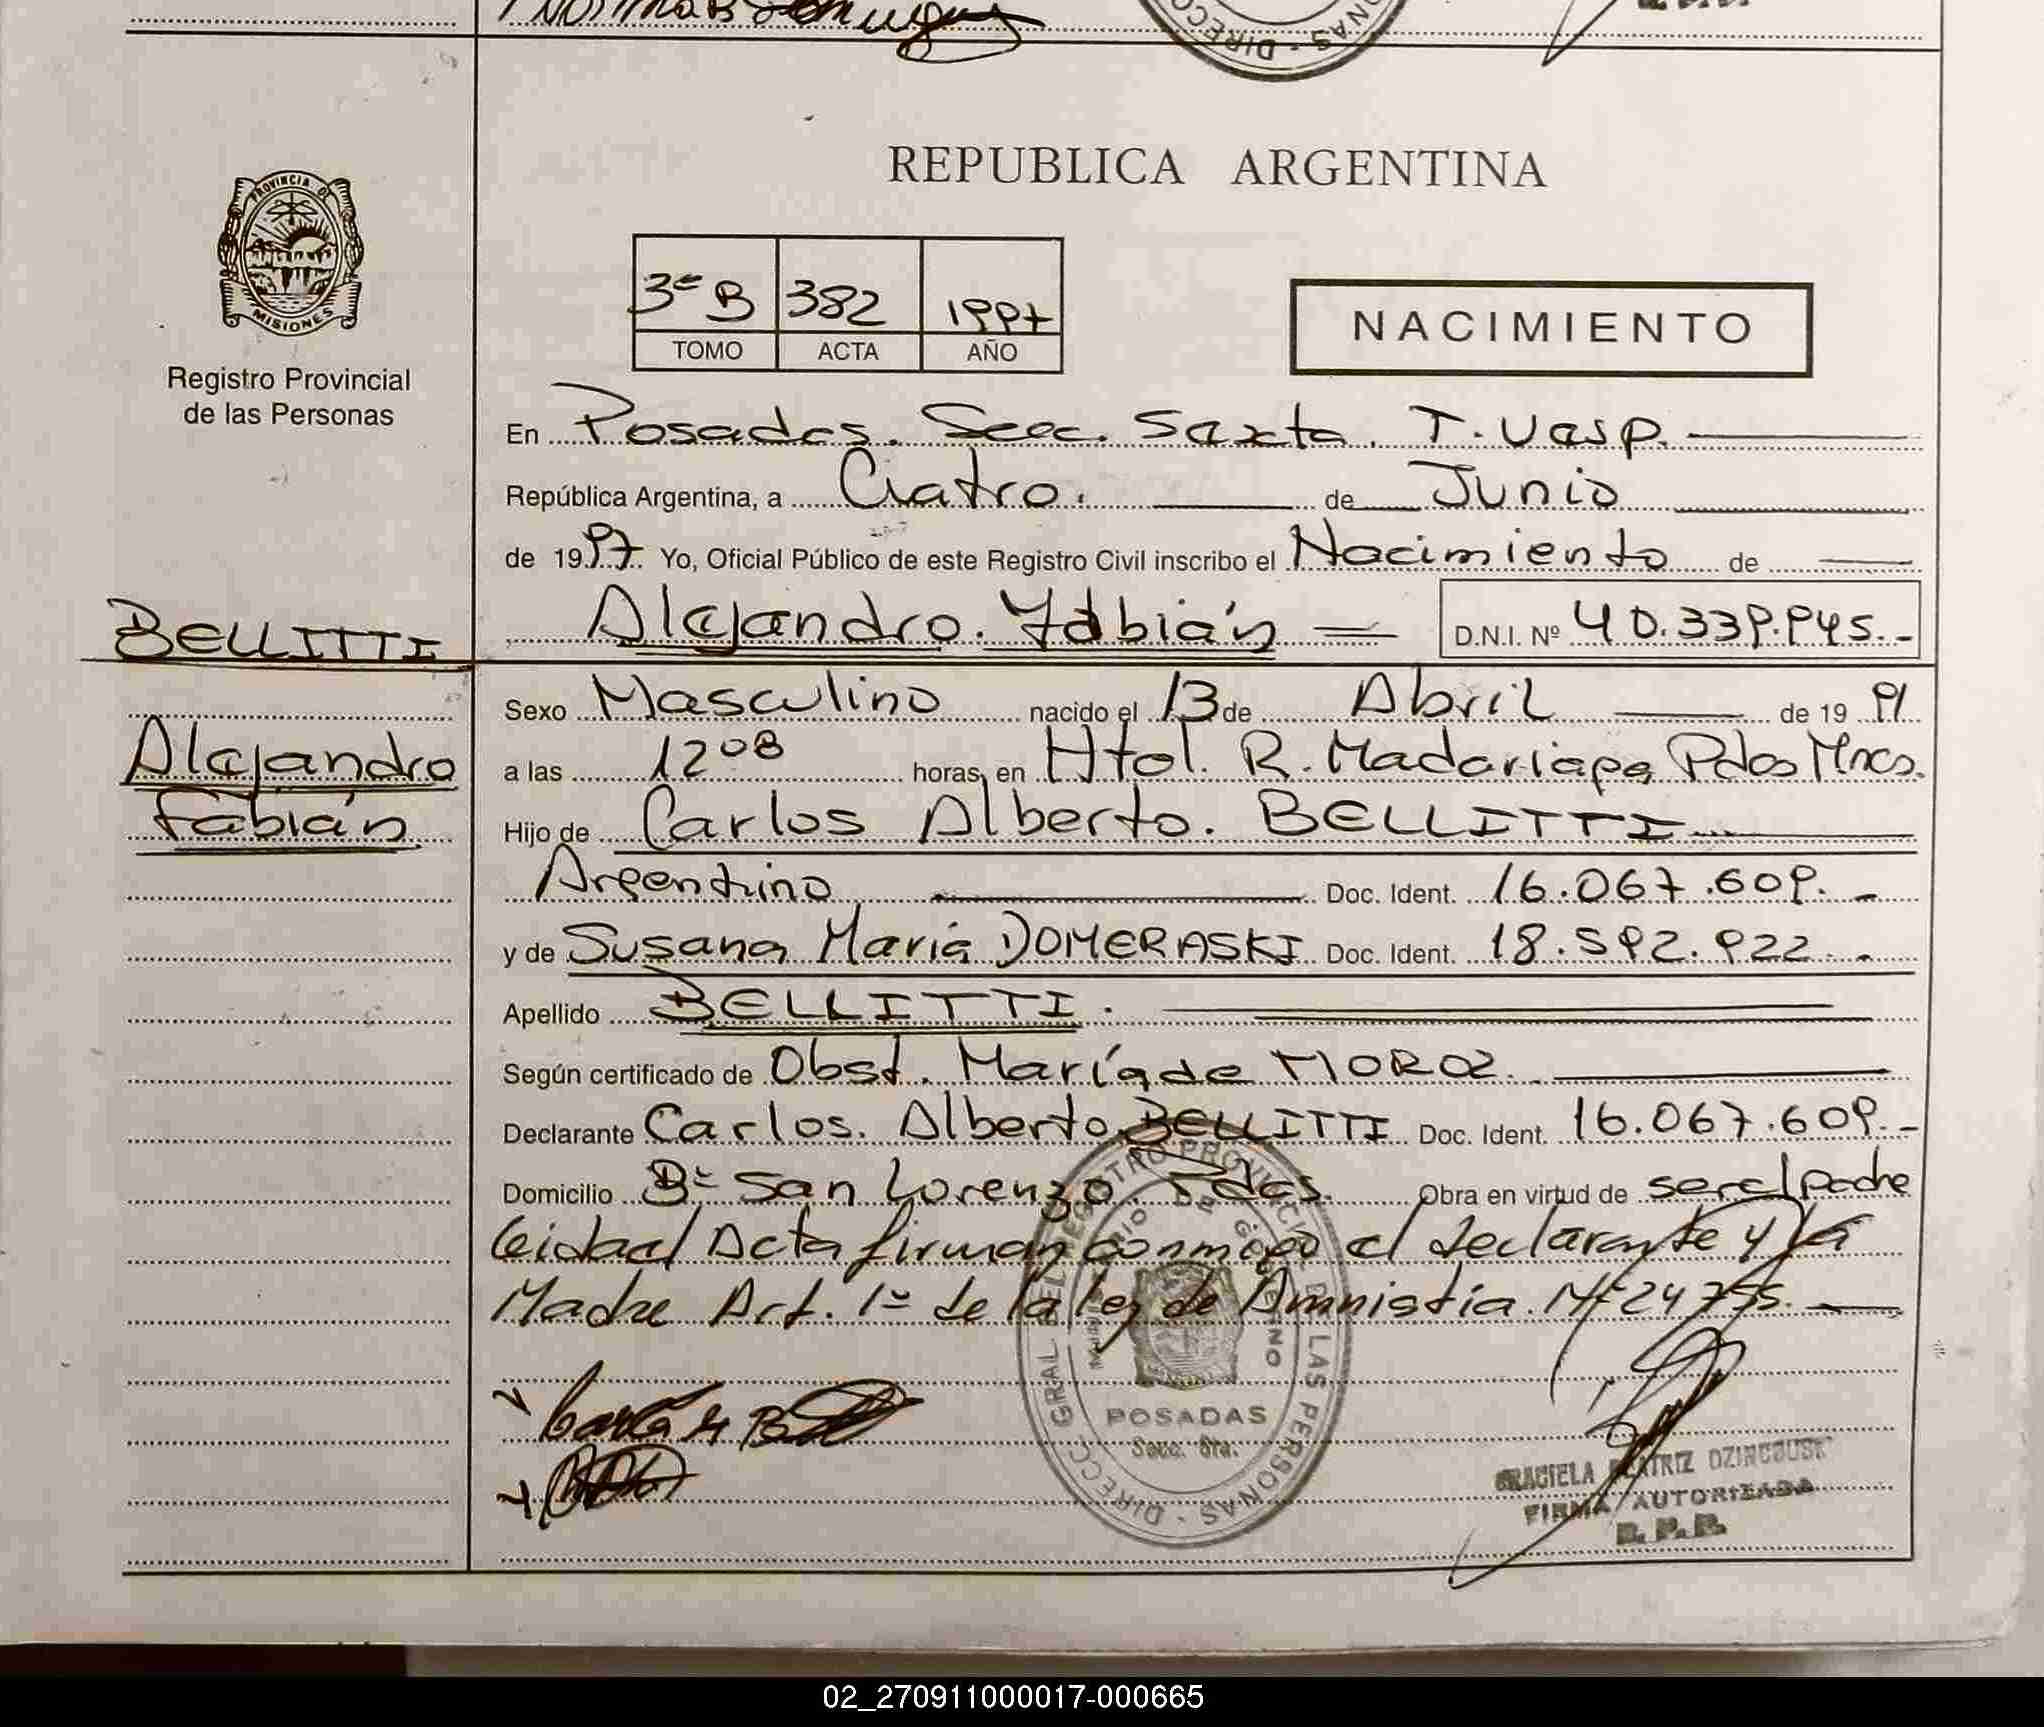 REPUBLICA ARGENTINA
PROVINCIA DE
MISIONES
Registro Provincial
de las Personas
3º B 382 1997
TOMO ACTA AÑO
NACIMIENTO
En Posadas. Secc. Sexta. T. Vasp.
República Argentina, a Cuatro. de Junio
de 1997 Yo, Oficial Público de este Registro Civil inscribo el Nacimiento de
BELLITTI
Alejandro. Fabián D.N.I. Nº 40.339.945.-
Sexo Masculino nacido el 13 de Abril de 19 91
Alejandro
Fabián
a las 12 08 horas, en Htol. R. Madariaga Pdas Mnes.
Hijo de Carlos Alberto. BELLITTI
Argentino Doc. Ident. 16.067.609.-
y de Susana María DOMERASKI Doc. Ident. 18.592.922.-
Apellido BELLITTI.
Según certificado de Obst. María de MOROZ
Declarante Carlos. Alberto BELLITTI Doc. Ident. 16.067.609.-
Domicilio Bº San Lorenzo. Pdas. Obra en virtud de ser el padre
Leida el Acta firman conmigo el declarante y la
Madre Art. 1º de la ley de Amnistia. Nº 24755.
DIRECC. GRAL. DEL REGISTRO PROVINCIAL DE LAS PERSONAS
POSADAS
Secc. 6ta.
GRACIELA BEATRIZ
FIRMA AUTORIZADA
R. P. P.
02_270911000017-000665